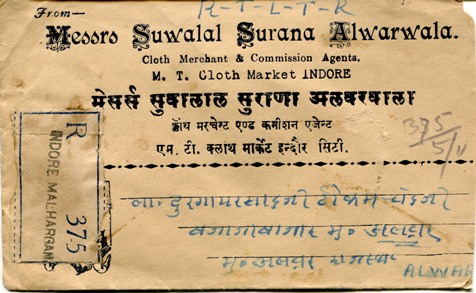 R-T-L-T-R
From—
Messrs Suwalal Surana Alwarwala.
Cloth Merchant & Commission Agents.
M. T. Cloth Market INDORE
मेसर्स सुवालाल सुराणा अलवरवाला
क्लॉथ मरचेन्ट एण्ड कमीशन एजेन्ट
एम. टी. क्लाथ मार्केट इन्दौर सिटी.
375
5/11
R
INDORE MALHARGANJ
375
ला.
मु. अलवर
मु. अलवर
ALWAR